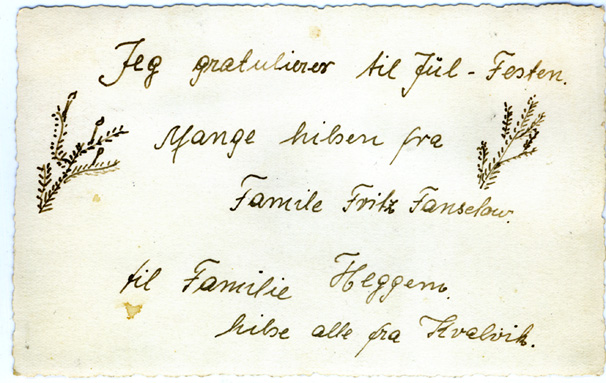 Jeg gratulierer til Jül - Festen.
Mange hilsen fra
Famile Fritz Fanselow.
til Familie Heggem.
hilse alle fra Kvalvik.